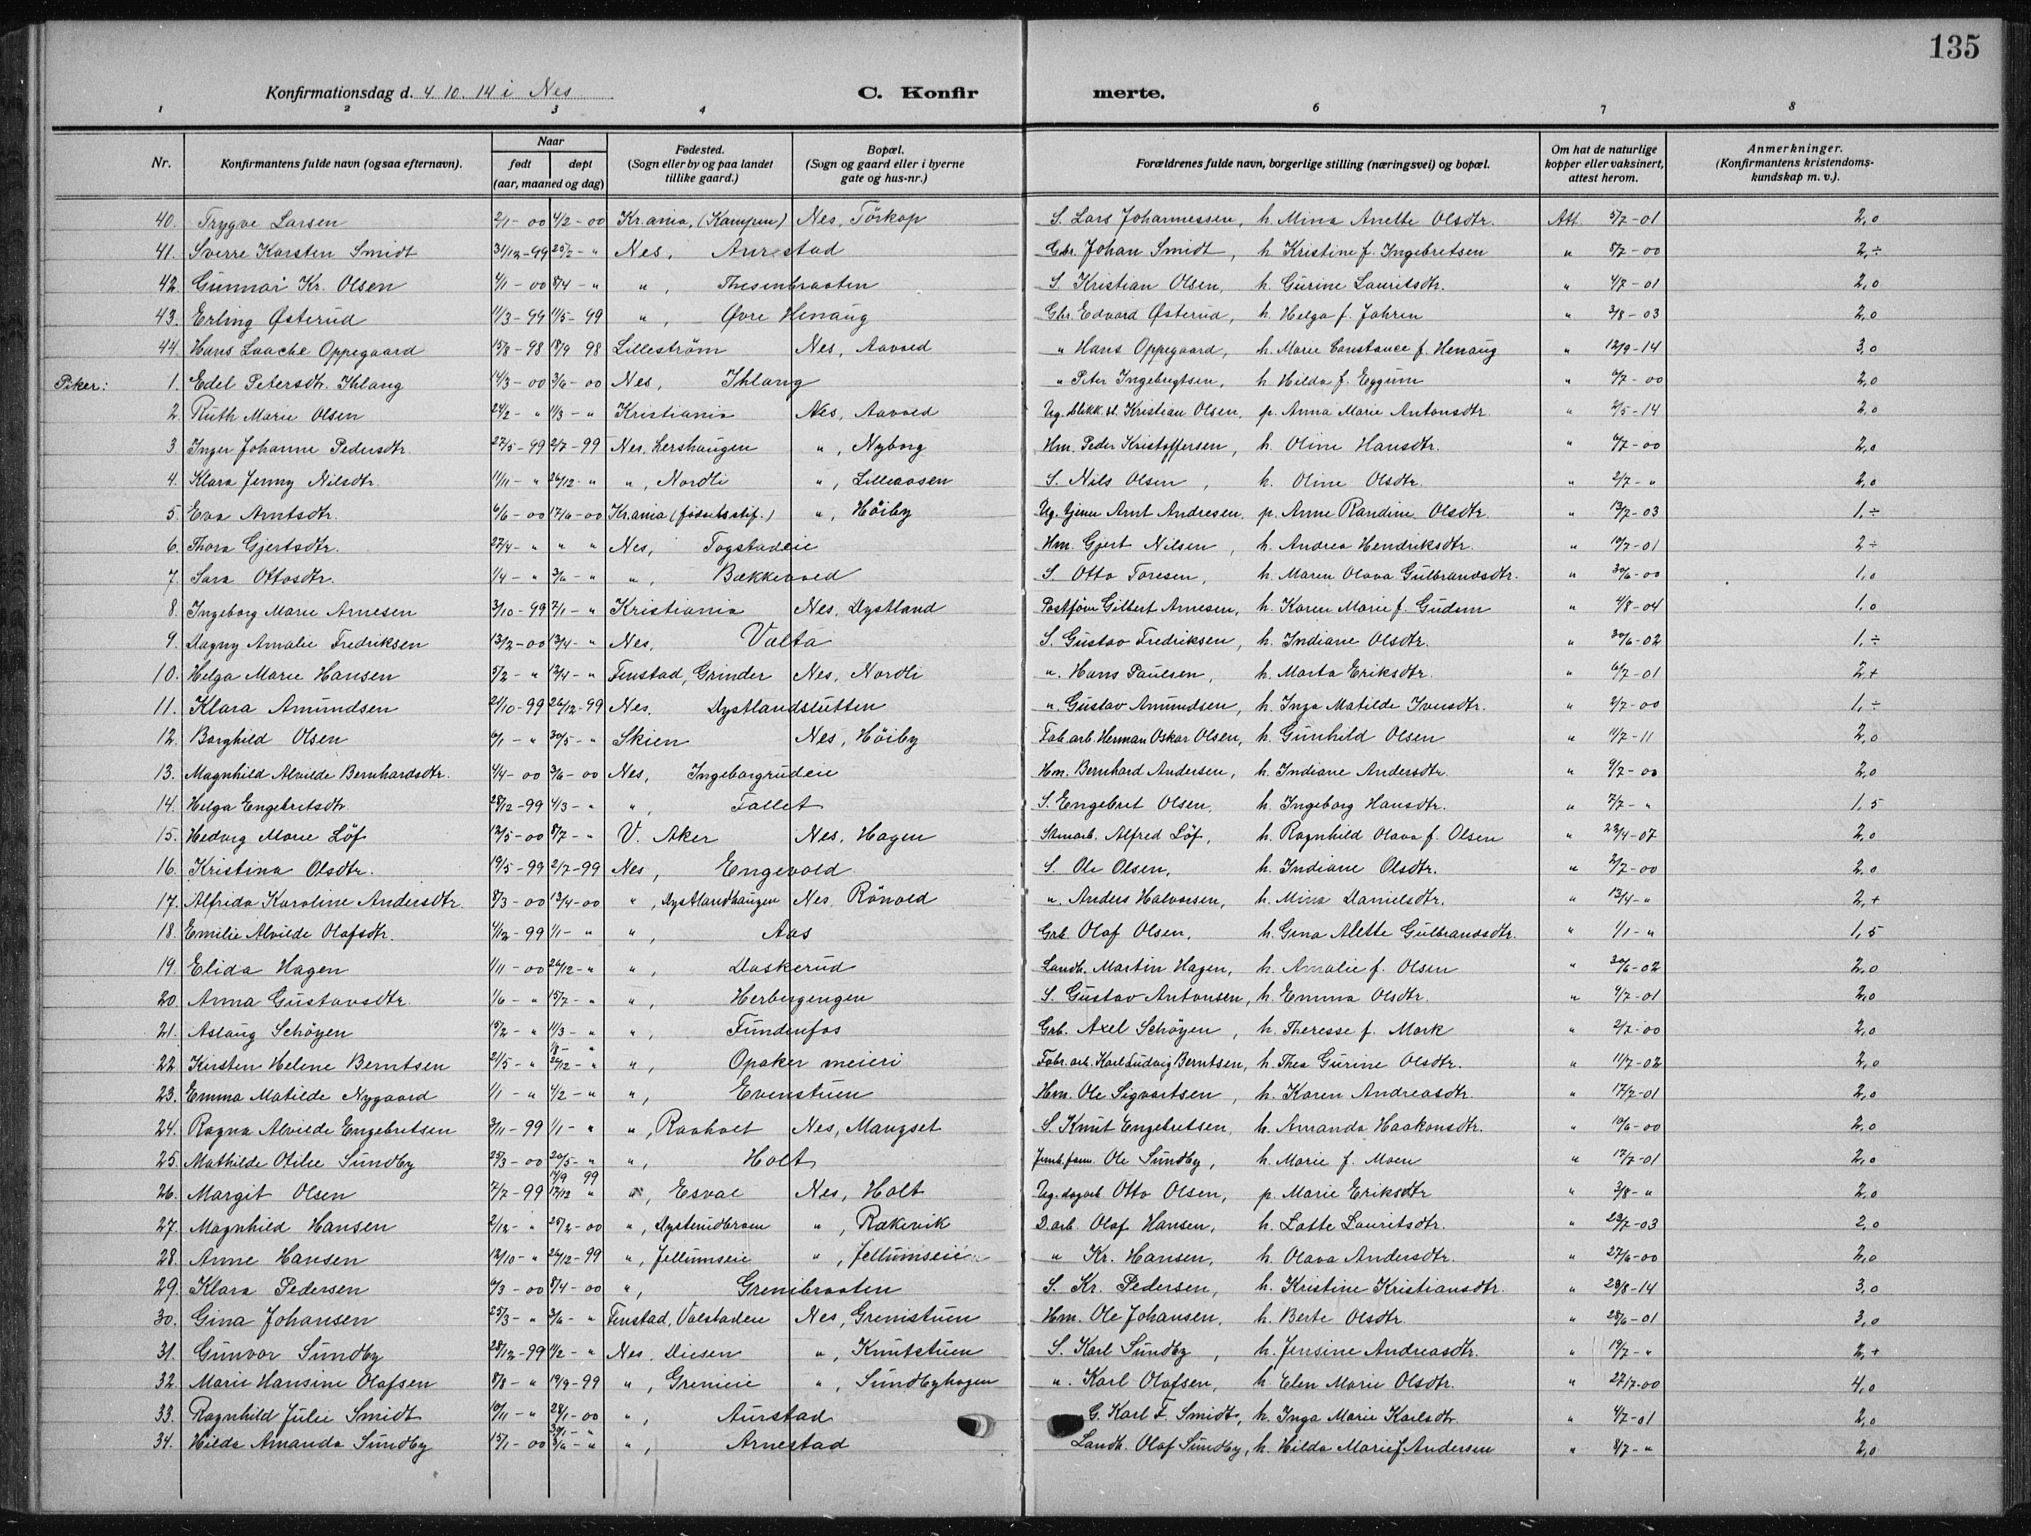 135
Konfirmationsdag d. 4. 10. 14 i Nes C. Konfirmerte.
1 2 3 4 6 7 8
Nr. Konfirmantens fulde navn (ogsaa efternavn). Naar født døpt (aar, maaned og dag) Fødested. (Sogn eller by og paa landet tillike gaard.) Bopæl. (Sogn og gaard eller i byerne gate og hus-nr.) Forældrenes fulde navn, borgerlige stilling (næringsvei) og bopæl. Om hat de naturlige kopper eller vaksinert, attest herom. Anmerkninger. (Konfirmantens kristendoms-kundskap m. v.).
40. Trygve Larsen 2/1-00 4/2-00 Kr.ania, (Kampen) Nes, Törkop S. Lars Johannessen, h. Mina Anette Olsdtr. Att. 5/7-01 2,0
41. Sverre Karsten Smidt 31/12-99 25/2-" Nes, Aurstad Gbr. Johan Smidt, h. Kristine f. Ingebretsen " 8/7-00 2,÷
42. Gunnar Kr. Olsen 4/1-00 8/4-" ", Thesenbraaten S. Kristian Olsen, h. Gurine Lauritsdtr. " 4/7-01 2,0
43. Erling Østerud 11/3-99 11/5-99 ", Øvre Henaug Gbr. Edvard Østerud, h. Helga f. Jahren " 3/8-03 2,0
44. Hans Laache Oppegaard 15/8-98 18/9 98 Lilleström Nes, Aavold " Hans Oppegaard, h. Marie Constance f. Henaug " 12/9-14 3,0
Piker: 1. Edel Petersdtr. Ihlang 14/3-00 3/6-00 Nes, Ihlang " Peter Ingebrigtsen, h. Hilda f. Eggum " 6/7-00 2,0
2. Ruth Marie Olsen 24/2-" 11/3-" Kristiania Nes, Aavold Ug. blikk.sl. Kristian Olsen, p. Anna Marie Antonsdtr. " 2/5-14 2,0
3. Inger Johanne Pedersdtr. 27/5-99 2/7-99 Nes, Lershaugen ", Nyborg Hm. Peder Kristoffersen, h. Oline Hansdtr. " 6/7-00 2,0
4. Klara Jenny Nilsdtr. 11/11-" 26/12-" ", Nordli ", Lilleaasen S. Nils Olsen, h. Oline Olsdtr. " 2/7-" 2,0
5. Eva Arntsdtr. 6/6-00 17/6-00 Kr.ania (fødselsstif.) ", Höiby Ug. tjener Arnt Andresen, p. Anne Randine Olsdtr. " 13/7-03 1,÷
6. Thora Gjertsdtr. 27/4-" " " Nes, Togstadeie Hm. Gjert Nilsen, h. Andrea Hendriksdtr. " 10/7-01 2÷
7. Sara Ottosdtr. 1/4-" 3/6-" ", Bækkevold S. Otto Toresen, h. Maren Olava Gulbrandsdtr. " 30/6-00 1,0
8. Ingeborg Marie Arnesen 3/10-99 7/1-" Kristiania Nes, Dystland Postfører Gilbert Arnesen, h. Karen Marie f. Gudem " 4/8-04 1,0
9. Dagny Amalie Fredriksen 13/2-00 13/4-" Nes, Valta S. Gustav Fredriksen, h. Indiane Olsdtr. " 30/6-02 1,÷
10. Helga Marie Hansen 5/2-" 13/4-" Fenstad, Grinder Nes, Nordli " Hans Paulsen, h. Marta Eriksdtr. " 6/7-01 2+
11. Klara Amundsen 21/10-99 26/12-99 Nes, Dystlandslutten " Gustav Amundsen, h. Inga Matilde Iversdtr. " 2/7-00 1,÷
12. Borghild Olsen 6/1-" 30/5-" Skien Nes, Höiby Fab.arb. Herman Oskar Olsen, h. Gunhild Olsen " 11/7-11 2,0
13. Magnhild Alvilde Bernhardsdtr. 4/4-00 3/6-00 Nes, Ingeborgrudeie Hm. Bernhard Andersen, h. Indiane Andersdtr. " 9/7-00 2,0
14. Helga Engebretsdtr 28/12-99 4/3-" ", Fallet S. Engebret Olsen, h. Ingeborg Hansdtr. " 7/7-" 1,5
15. Hedvig Marie Löf 12/5-00 8/7-" V. Aker Nes, Hagen Stenarb. Alfred Löf, h. Ragnhild Olava f. Olsen " 22/4-07 2,0
16. Kristina Olsdtr. 19/5-99 2/7-99 Nes, Engevold S. Ole Olsen, h. Indiane Olsdtr. " 2/7-00 2,0
17. Alfrida Karoline Andersdtr. 8/3-00 13/4-00 ", Dystlandhaugen Nes Rönold " Anders Halvorsen, h. Mina Danielsdtr. " 13/4-" 2,+
18. Emilie Alvilde Olafsdtr. 4/12-99 1/1-" ", Aas Grb. Olaf Olsen, h. Gina Alette Gulbrandsdtr. " 1/1-" 1,5
19. Elida Hagen 1/11-00 26/12-" ", Daskerud Landh. Martin Hagen, h. Amalie f. Olsen " 30/6-02 2,0
20. Anna Gustavsdtr. 1/6-" 15/7-" ", Herbergengen S. Gustav Antonsen, h. Emma Olsdtr. " 4/7-01 2,0
21. Aslaug Schöyen 15/2-" 11/3-" ", Fundenfos Grb. Axel Schöyen, h. Theresse f. Mork " 2/7-00 2,0
22. Kirsten Helene Berntsen 21/5-" 1/8-" 26/12-" ", Opaker meieri Fabr.arb. Karl Ludvig Berntsen, h. Thea Gurine Olsdtr. " 11/7-02 2,0
23. Emma Matilde Nygaard 1/1-" 4/2-" ", Evenstuen Hm. Ole Sigvartsen, h. Karen Andreasdtr. " 17/7-01 2,0
24. Ragna Alvilde Engebretsen 3/11-99 1/1-" ", Raaholt Nes, Mangset S. Knut Engebretsen, h. Amanda Haakonsdtr. " 10/6-00 2,0
25. Mathilde Otilie Sundby 25/3-00 20/5-" ", Holt Jernb.form. Ole Sundby, h. Marie f. Moen " 17/7-01 2,0
26. Margit Olsen 7/7-99 17/9 99 17/12 " ", Esval Nes, Holt Ug. dagarb. Otto Olsen, p. Marie Eriksdtr " 3/8-" 2,0
27. Magnhild Hansen 2/12-" 25/2-00 ", Dysterudbraen ", Rækevik D.arb. Olaf Hansen, h. Lotte Lauritsdtr. " 22/7-03 2,0
28. Anne Hansen 12/10-" 26/12-99 ", Jellumseie ", Jellumseie " Kr. Hansen, h. Olava Andersdtr. " 27/6-00 2,0
29. Klara Pedersen 6/3-00 8/4-00 ", Grenibraaten S. Kr. Pedersen, h. Kristine Kristiansdtr. " 28/8-14 3,0
30. Gina Johansen 25/3-" 3/6-" Fenstad, Valstadeie Nes, Grenistuen Hm. Ole Johansen, h. Berte Olsdtr. " 28/6-01 3,0
31. Gunvor Sundby 28/12-99 11/2-" Nes. Diesen ", Knutstuen S. Karl Sundby, h. Jensine Andreasdtr. " 19/7-" 2,+
32. Marie Hansine Olafsen 8/8-" 19/9-99 ", Grenieie ", Sundbyhagen " Karl Olafsen, h. Elen Marie Olsdtr. " 27/7-00 4,0
33. Ragnhild Julie Smidt 10/11-" 28/1-00 ", Aurstad G. Karl F. Smidt, h. Inga Marie Karlsdtr. " 4/7-01 2,0
34. Hilda Amanda Sundby 15/1-00 3/6-" ", Arnestad Landh. Olaf Sundby, h. Hilda Marie f. Andersen " 8/7-" 2,0